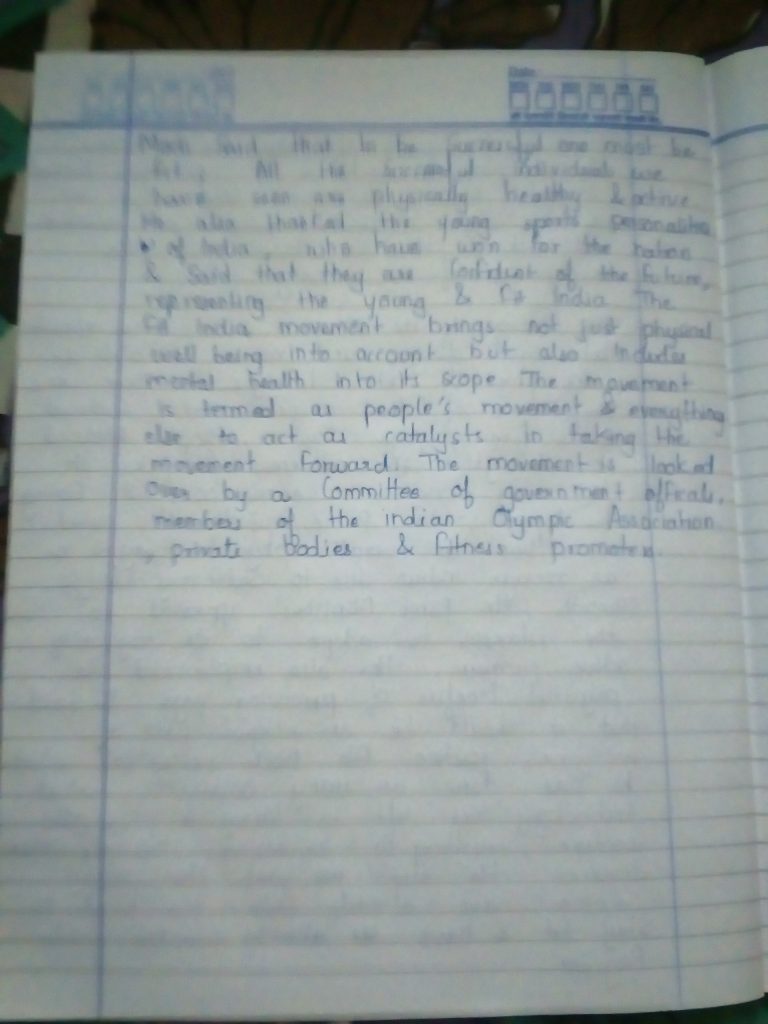 Modi said that to be successful one must be
fit. All the successful individuals we
have seen are physically healthy & active
He also thanked the young sports personalities
of India, who have won for the nation
& Said that they are Confident of the future,
representing the young & fit India The
fit India movement brings not just physical
well being into account but also includes
mental health into its scope The movement
is termed as people's movement & everything
else to act as catalysts in taking the
movement forward. The movement is looked
over by a Committee of government officials,
members of the indian Olympic Association
, private Bodies & fitness promoters